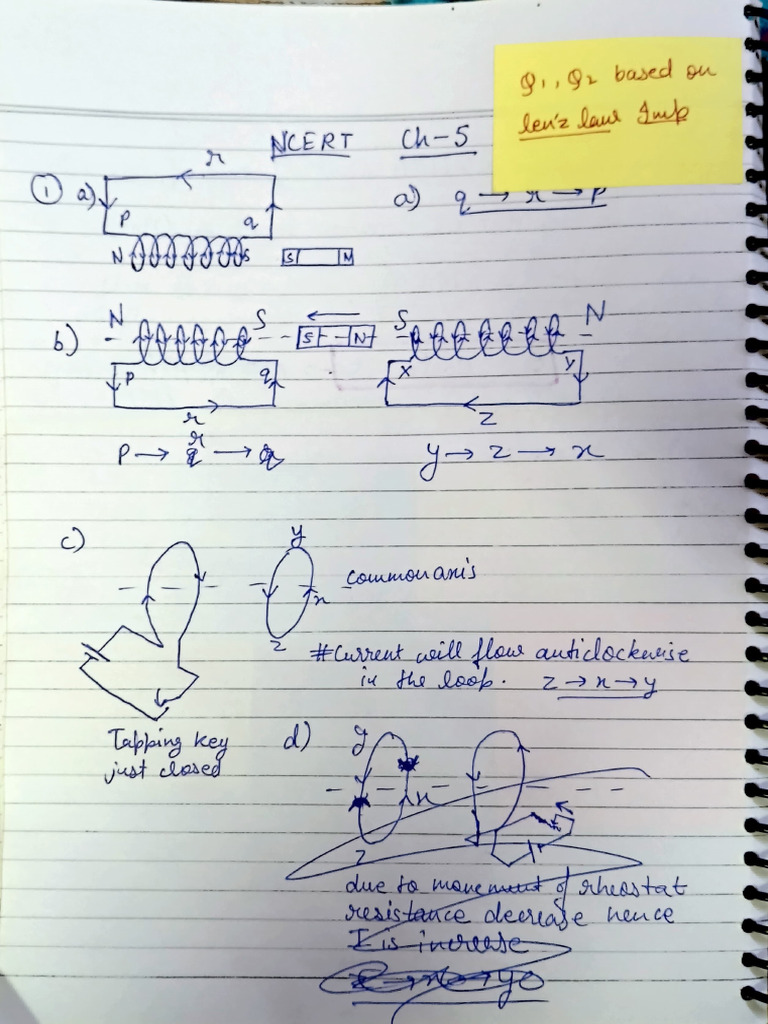 Q1, Q2 based on
len'z law Imp
NCERT Ch-5
r
① a)
p q
N S S N
a) q → r → p
b)
N S S N S N
p q x y
r z
p → r → q
y → z → x
c)
y
common axis
x
z
#Current will flow anticlockwise
in the loop. z → x → y
Tapping key
just closed
d)
y
x
z
due to movement of rheostat
resistance decrease hence
I is increase